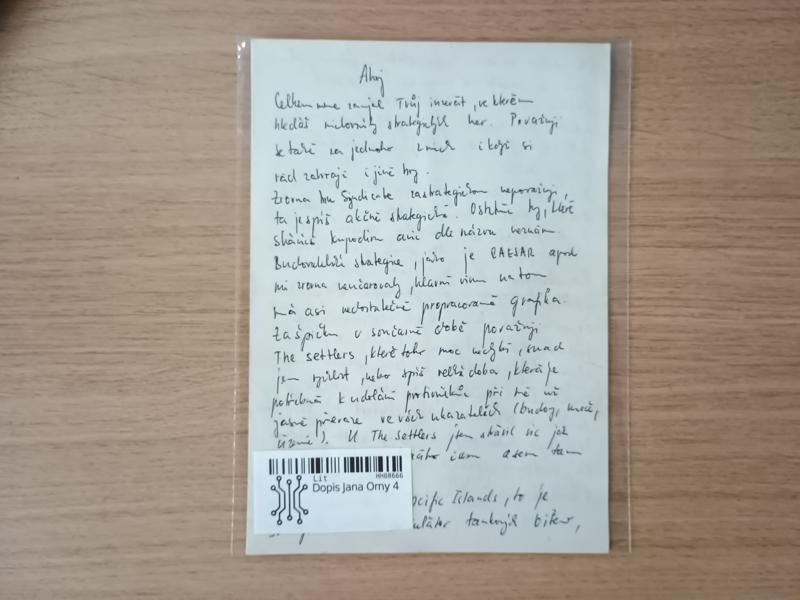 Ahoj
Celkem mne zaujal Tvůj inserát, ve kterém
hledáš milovníky strategických her. Považuji
se také za jednoho z nich i když si
rád zahraji i jiné hry.
Zrovna hru Syndicate za strategickou nepovažuji,
ta je spíš akčně strategická. Ostatní hry, které
sháníš kupodivu ani dle názvu neznám.
Budovatelské strategie, jako je CAESAR apod
mi zrovna neučarovaly, hlavní vinu na tom
má asi nedostatečně propracovaná grafika.
Za špičku v současné době považuji
The settlers, které toho moc nechybí, snad
jen rychlost, nebo spíš delší doba, která je
potřebná k udolání protivníků při mé už
jasné převaze ve všech ukazatelích (budovy, meče,
území). U The Settlers jsem strávil víc jak
času a sem tam
Islands, to je
tankových bitev,
Lit
HH08666
Dopis Jana Orny 4